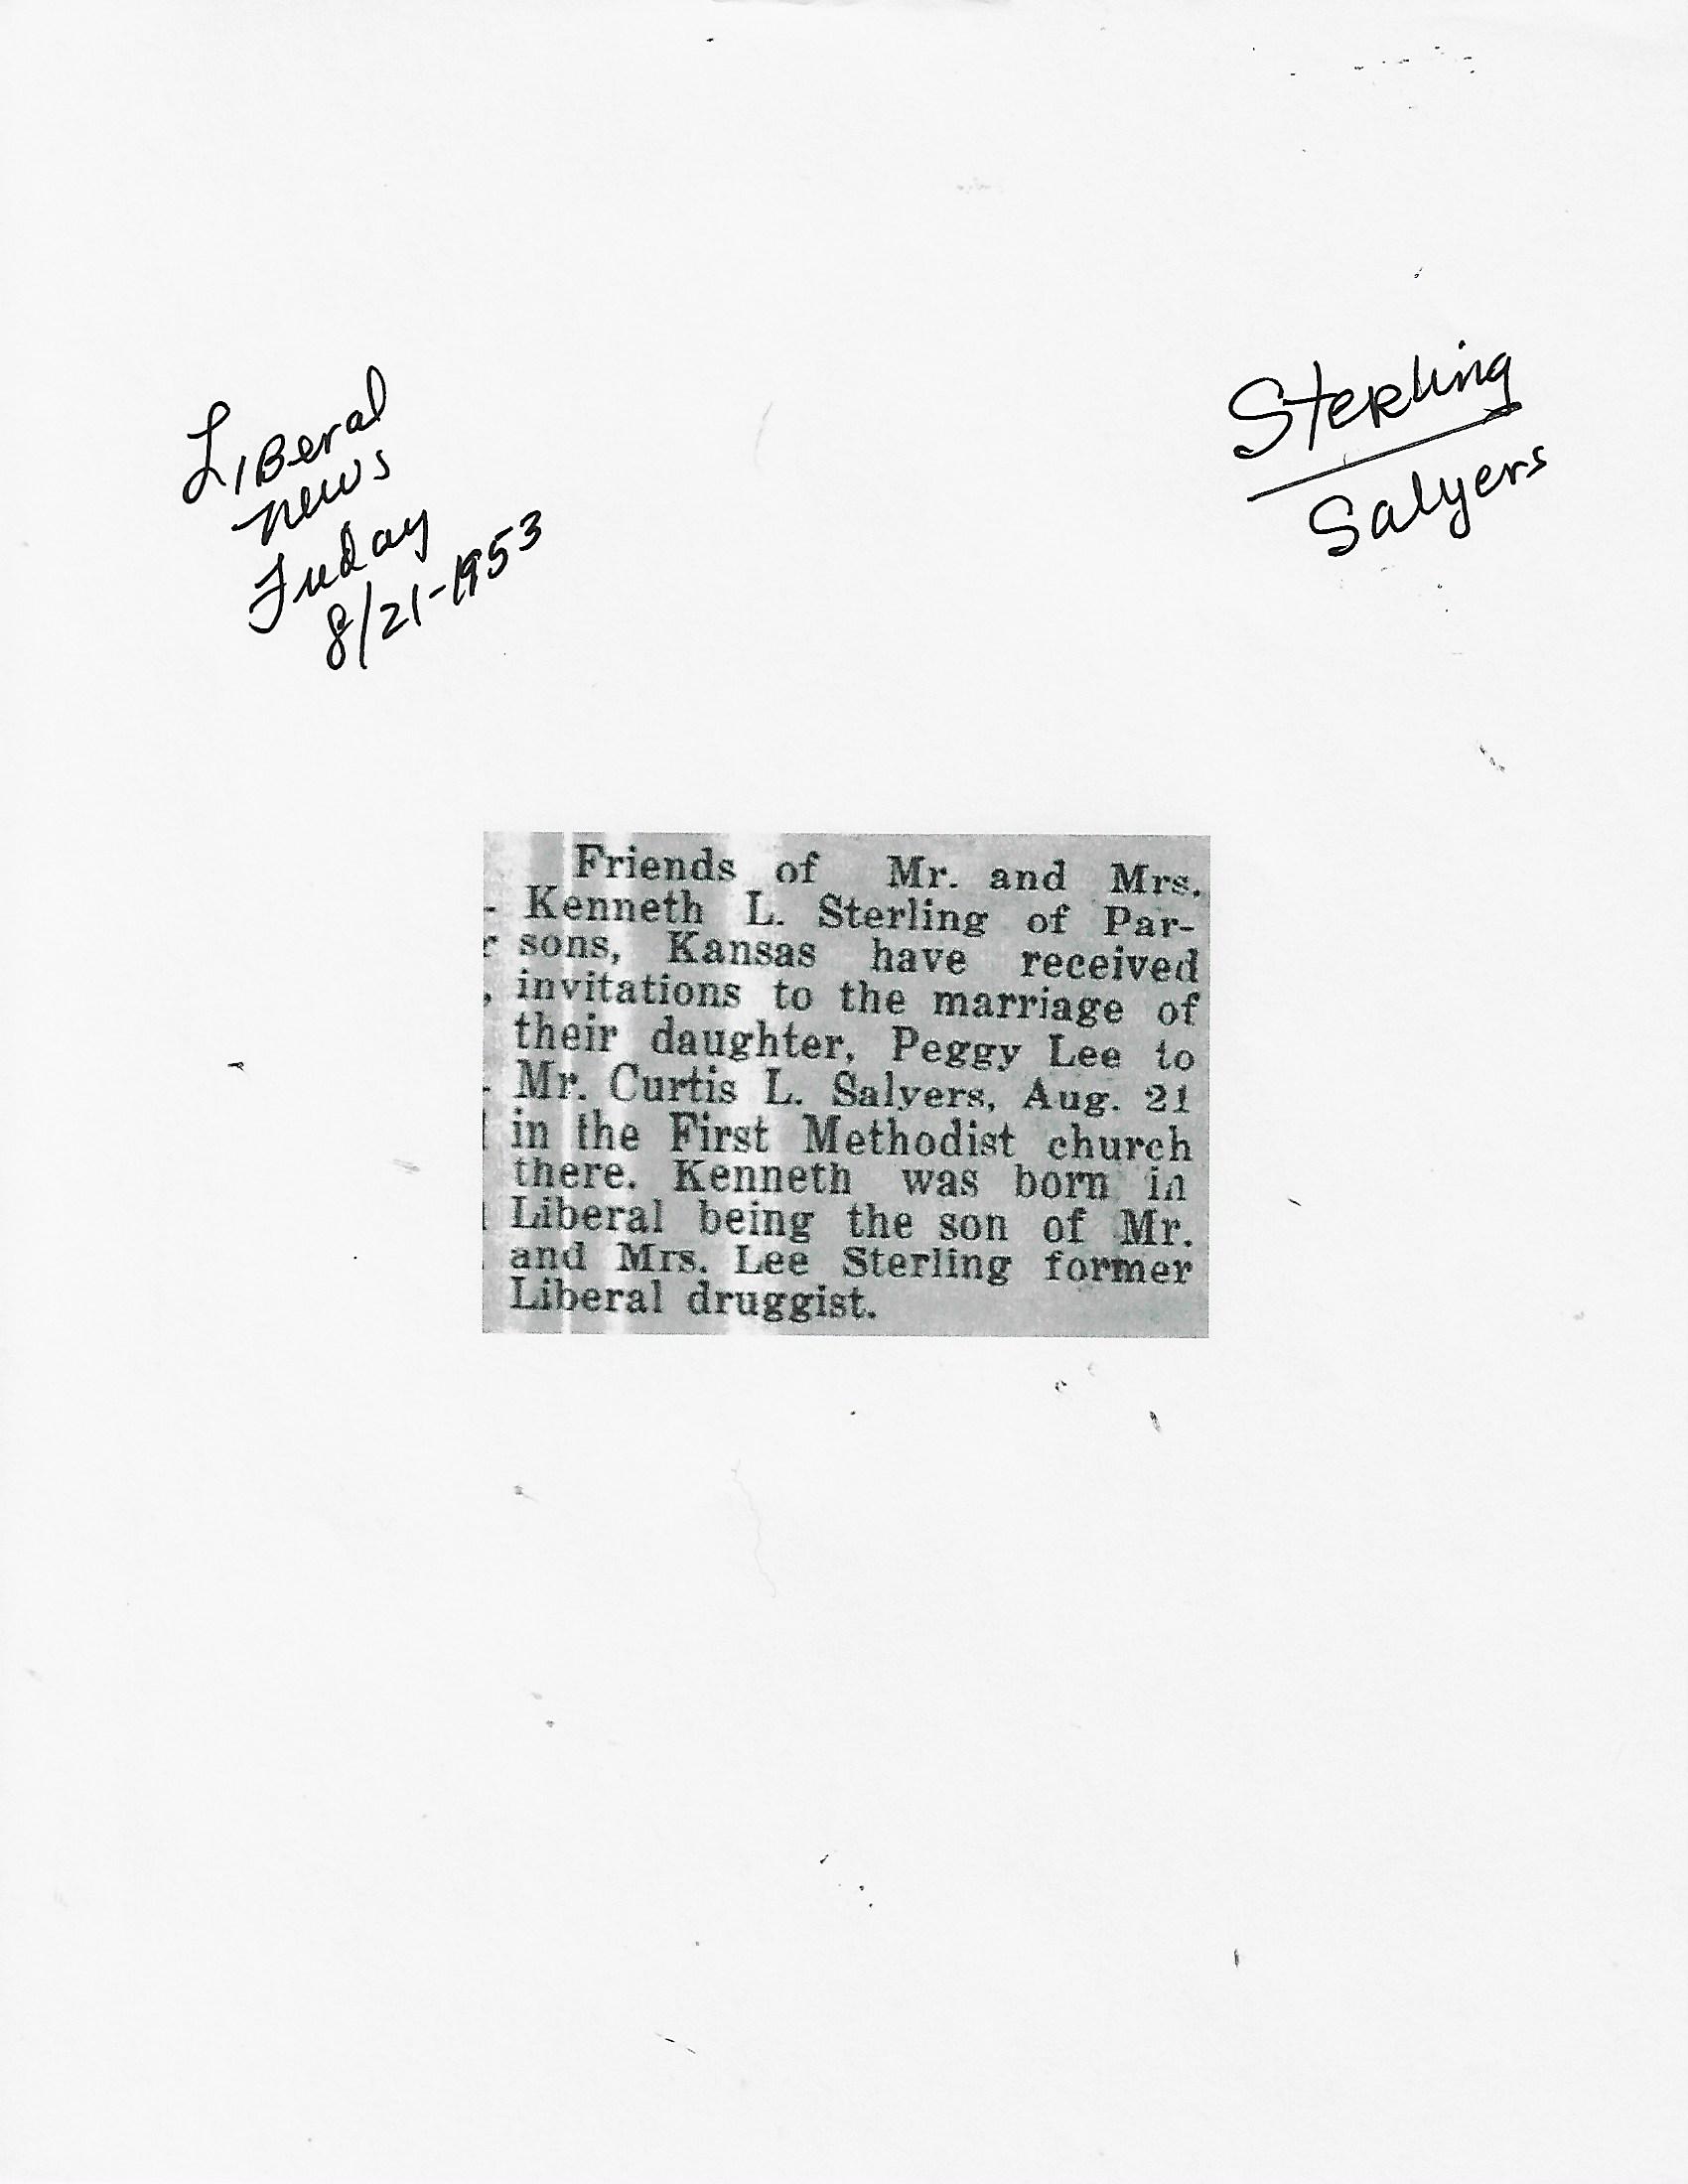 Liberal
News
Friday
8/21-1953
Sterling
Salyers
Friends of Mr. and Mrs.
- Kenneth L. Sterling of Par-
r sons, Kansas have received
, invitations to the marriage of
their daughter, Peggy Lee to
- Mr. Curtis L. Salyers, Aug. 21
in the First Methodist church
there. Kenneth was born in
Liberal being the son of Mr.
and Mrs. Lee Sterling former
Liberal druggist.